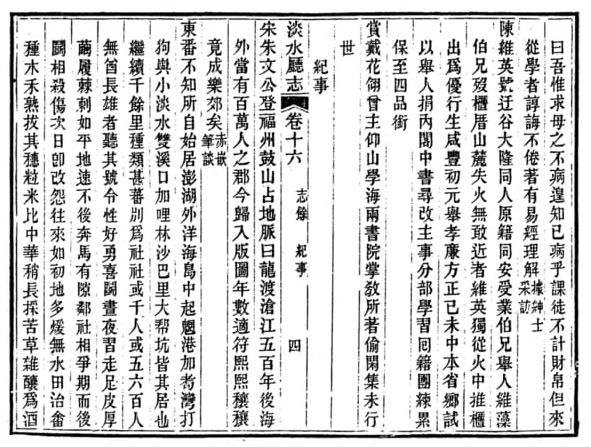 曰吾惟求母之不病遑知已病乎課徒不計財帛但來
從學者諄誨不倦著有易經理解據紳士采訪
陳維英號迂谷大隆同人原籍同安受業伯兄舉人維藻
伯兄歿櫃厝山麓失火無敢近者維英獨從火中推櫃
出爲優行生咸豐初元舉孝廉方正己未中本省鄉試
以舉人捐內閣中書尋改主事分部學習囘籍團練累
保至四品銜
賞戴花翎曾主仰山學海兩書院掌敎所著偷閑集未行
世
紀事
淡水廳志 卷十六 志餘 紀事 四
宋朱文公登福州鼓山占地脈曰龍渡滄江五百年後海
外當有百萬人之郡今歸入版圖年數適符熙熙穰穰
竟成樂郊矣赤嵌筆談
東番不知所自始居澎湖外洋海島中起魍港加老灣打
狗與小淡水雙溪口加哩林沙巴里大幇坑皆其居也
繼續千餘里種類甚蕃別爲社社或千人或五六百人
無酋長雄者聽其號令性好勇喜鬪晝夜習走足皮厚
繭履棘刺如平地速不後奔馬有隙鄰社相爭期而後
鬪相殺傷次日卽改怨往來如初地多煖無水田治畬
種木禾熟拔其穗粒米比中華稍長採苦草雜釀爲酒